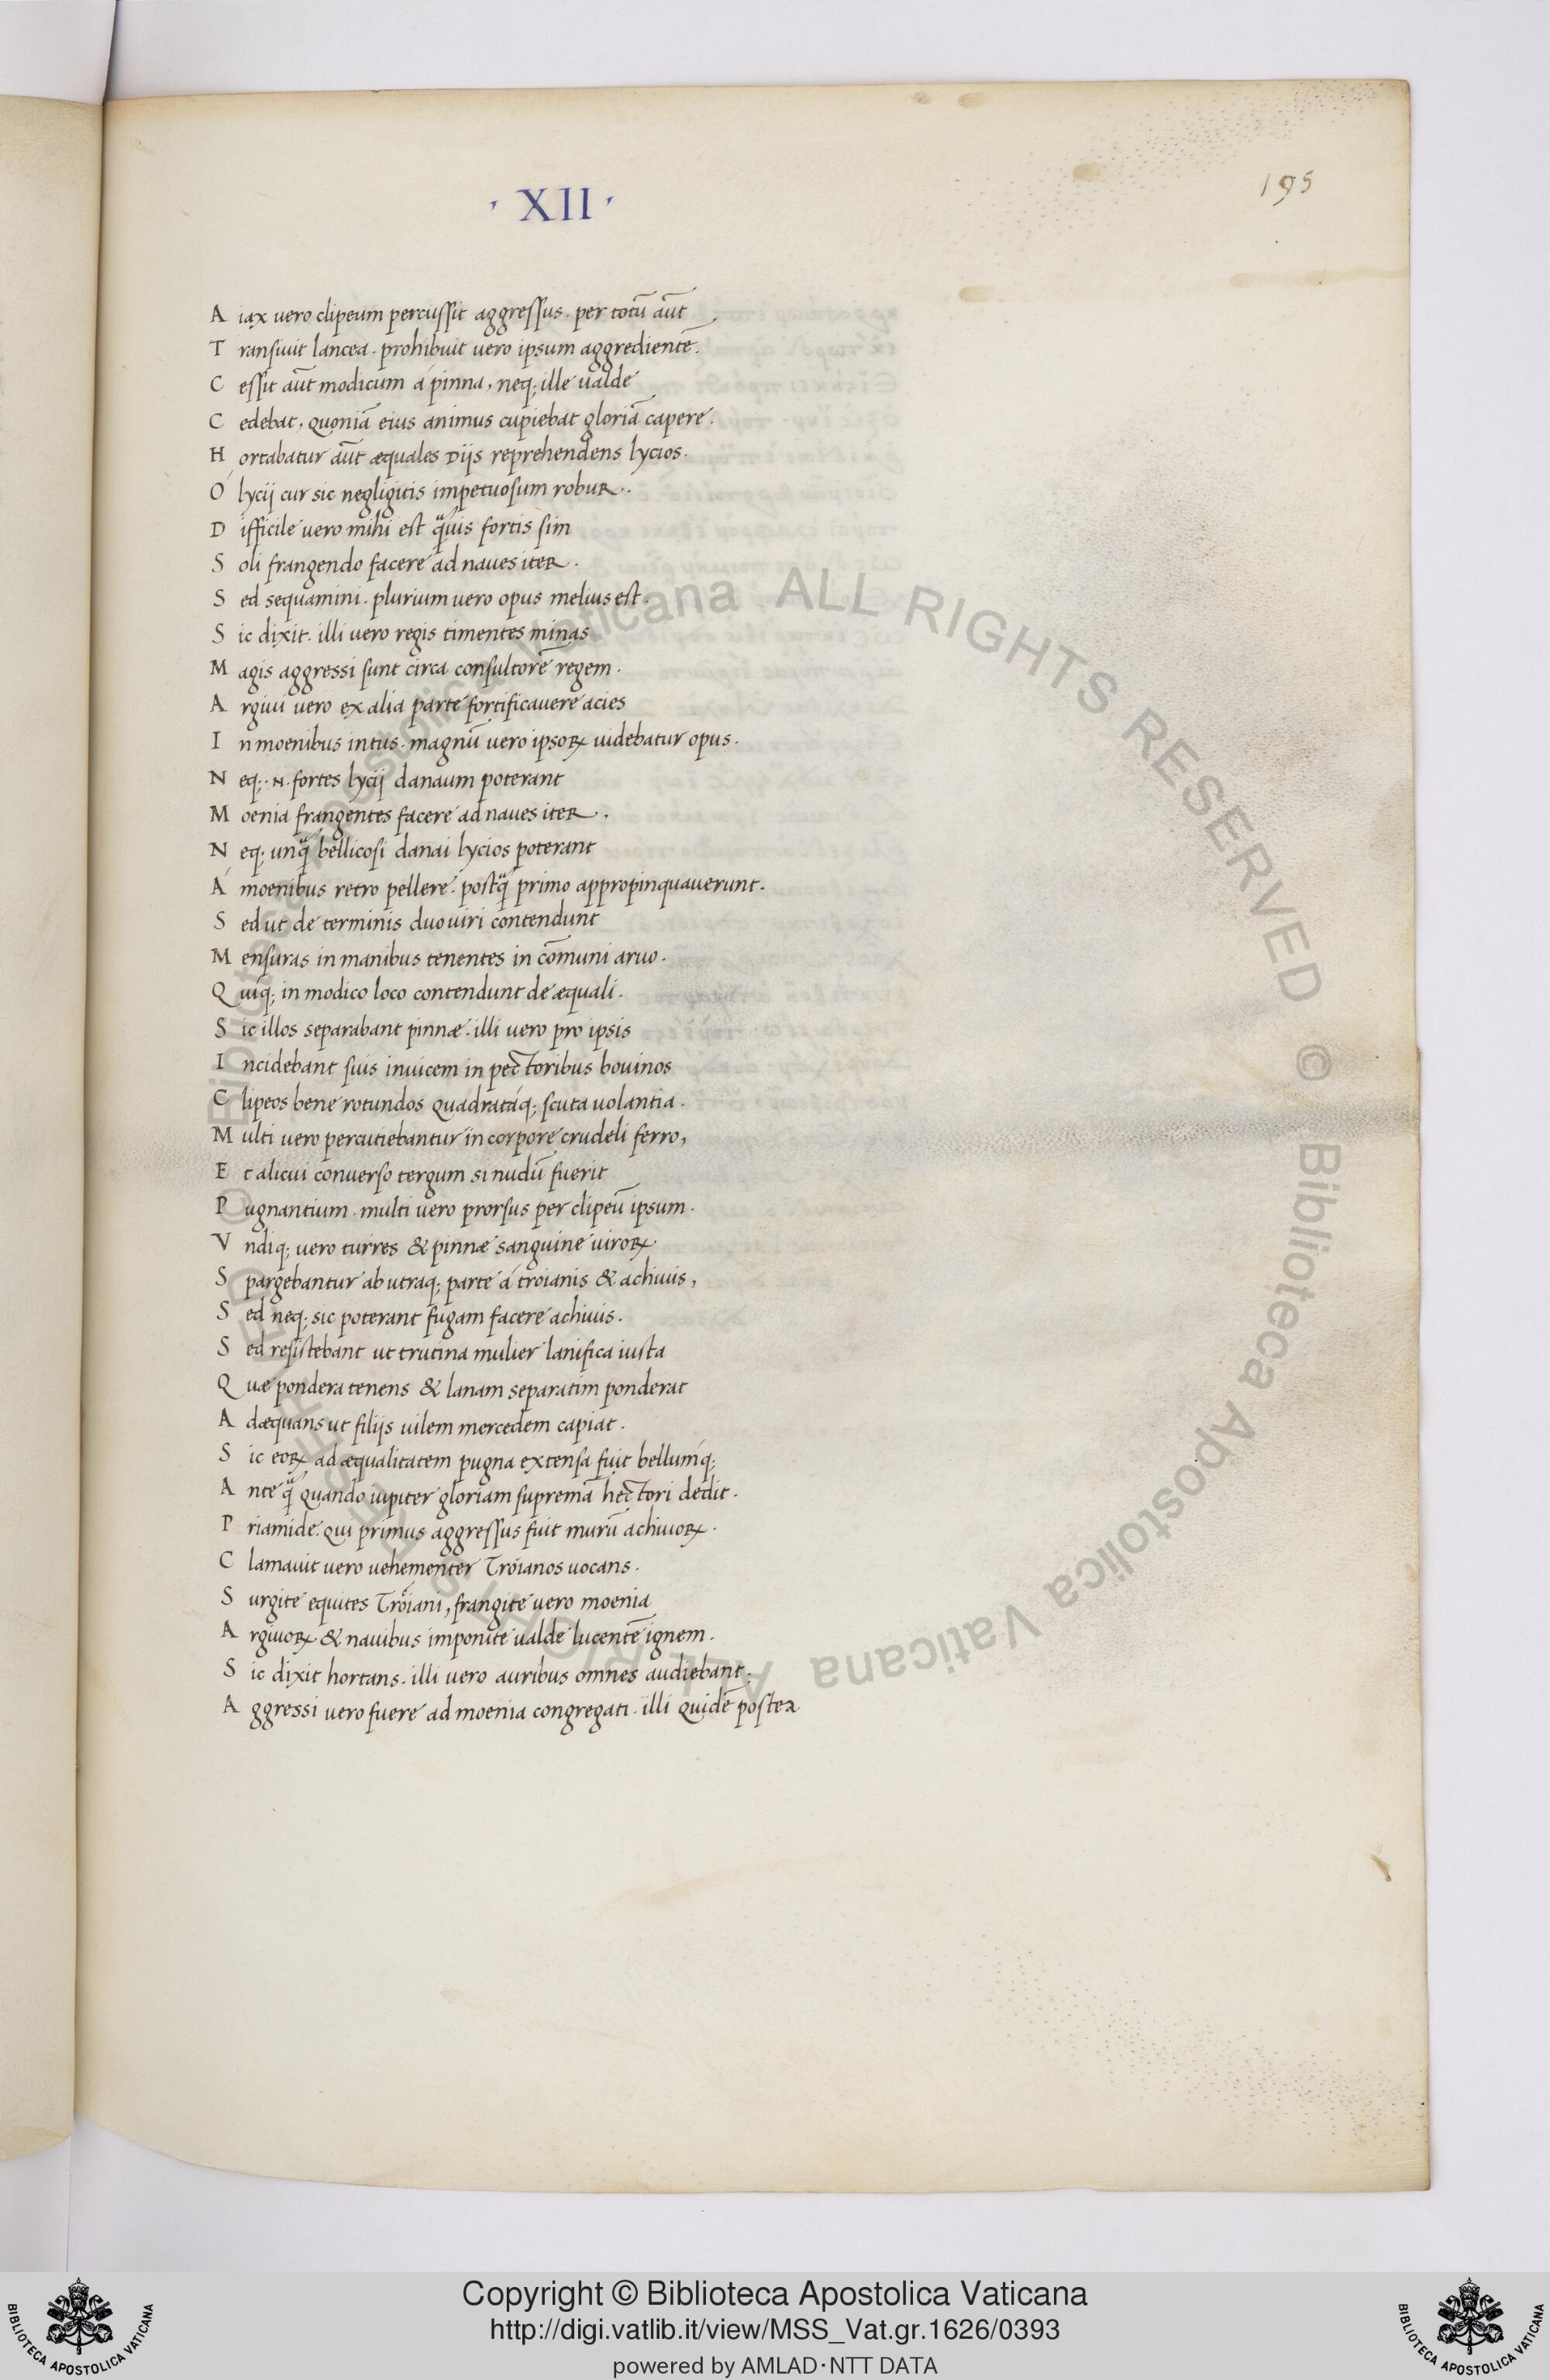 · XII ·
195
A iax uero clipeum percussit aggressus. per totū aūt
T ransiuit lancea. prohibuit uero ipsum aggredientē.
C essit aūt modicum á pinna, neq; ille ualde
C edebat, quoniā eius animus cupiebat gloriā capere.
H ortabatur aūt æquales Diis reprehendens lycios.
Ó lycij cur sic negligitis impetuosum robur.
D ifficile uero mihi est q̃uis fortis sim
S oli frangendo facere ad naues iter.
S ed sequamini. plurium uero opus melius est.
S ic dixit. illi uero regis timentes minas
M agis aggressi sunt circa consultorē regem.
A rgiui uero ex alia parte fortificauere acies
I n moenibus intus. magnū uero ipsoꝝ uidebatur opus.
N eq; .n. fortes lycij danaum poterant
M oenia frangentes facere ad naues iter.
N eq; unq̃ bellicosi danai lycios poterant
Á moenibus retro pellere. postq̃ primo appropinquauerunt.
S ed ut de terminis duo uiri contendunt
M ensuras in manibus tenentes in cōmuni aruo.
Q uiq; in modico loco contendunt de æquali.
S ic illos separabant pinnæ. illi uero pro ipsis
I ncidebant suis inuicem in pectoribus bouinos
C lipeos bene rotundos quadratáq; scuta uolantia.
M ulti uero percutiebantur in corpore crudeli ferro,
E t alicui conuerso tergum si nudū fuerit
P ugnantium. multi uero prorsus per clipeū ipsum.
V ndiq; uero turres & pinnæ sanguine uiroꝝ
S pargebantur ab utraq; parte á troianis & achiuis,
S ed neq; sic poterant fugam facere achiuis.
S ed resistebant ut trutina mulier lanifica iusta
Q uæ pondera tenens & lanam separatim ponderat
A dæquans ut filijs uilem mercedem capiat.
S ic eoꝝ ad æqualitatem pugna extensa fuit bellumq́;
A nte q̃ quando iupiter gloriam supremā hectori dedit.
P riamide. qui primus aggressus fuit murū achiuoꝝ.
C lamauit uero uehementer Troianos uocans.
S urgite equites Troiani, frangite uero moenia
A rgiuoꝝ & nauibus imponite ualde lucentē ignem.
S ic dixit hortans. illi uero auribus omnes audiebant:
A ggressi uero fuere ad moenia congregati. illi quidē postea
Copyright © Biblioteca Apostolica Vaticana
http://digi.vatlib.it/view/MSS_Vat.gr.1626/0393
powered by AMLAD·NTT DATA